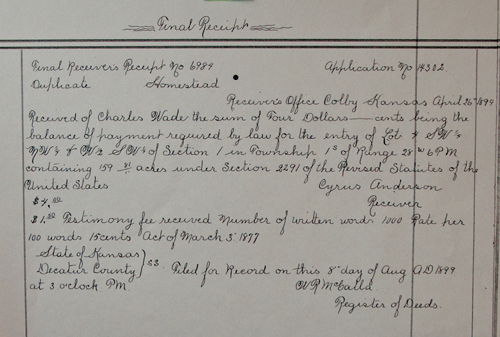 Final Receipt
Final Receiver's Receipt No 6989 Application No 14302
Duplicate Homestead
Receiver's Office Colby Kansas April 26th 1894
Received of Charles Wade the sum of Four Dollars — cents being the
balance of payment required by law for the entry of Lot 4 SW¼
NW¼ & W½ SW¼ of Section 1 in Township 1 S of Range 28 W 6 PM
containing 159 acres under Section 2291 of the Revised Statutes of the
United States Cyrus Anderson
$4.00 Receiver
$1.50 Testimony fee received Number of written words 1000 Rate per
100 words 15 cents Act of March 3d 1877
State of Kansas
Decatur County } SS. Filed for Record on this 8th day of Aug AD 1899
at 3 o'clock PM. 
Register of Deeds.